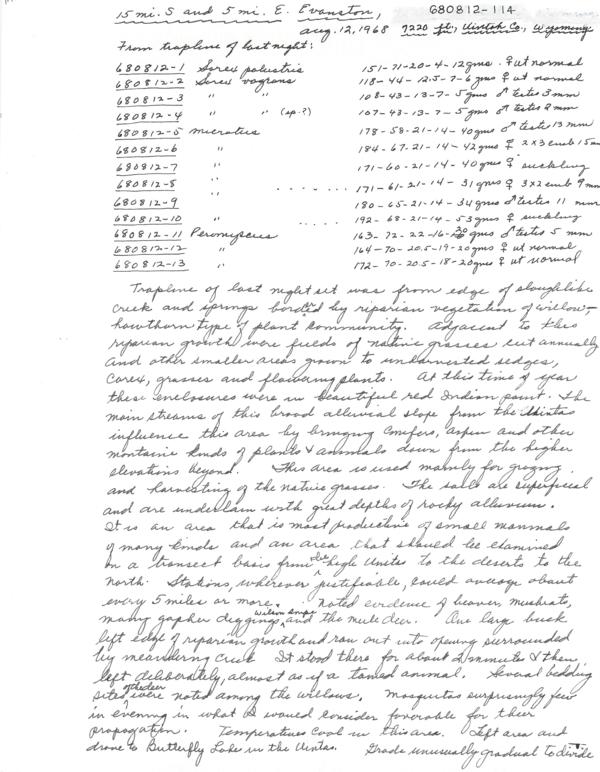 15 mi. S and 5 mi. E. Evanston, 680812-114
Aug. 12, 1968 7220 ft., Uintah Co., Wyoming
From trapline of last night:
680812-1 Sorex palustris 151-71-20-4-12gms. ♀ ut normal
680812-2 Sorex vagrans 118-44-12.5-7-6 gms ♀ ut normal
680812-3 " " 108-43-13-7-5gms ♂ testes 3mm
680812-4 " " (sp.?) 107-43-13-7-5 gms ♂ testes 2mm
680812-5 Microtus 178-58-21-14-40gms ♂ testes 13 mm
680812-6 " 184-67-21-14-42gms ♀ 2x3 emb 15mm
680812-7 " 171-60-21-14-40gms ♀ suckling
680812-8 " ..... 171-61-21-14-31 gms ♀ 3x2 emb 9mm
680812-9 180-65-21-14-34gms ♂ testes 11 mm
680812-10 " 192-68-21-14-53gms ♀ suckling
680812-11 Peromyscus 163-72-22-16-20 gms ♂ testes 5 mm
680812-12 " 164-70-20.5-19-20gms ♀ ut normal
680812-13 " 172-70-20.5-18-20gms ♀ ut normal
Trapline of last night set was from edge of sloughlike
creek and springs bordered by riparian vegetation of willow-
hawthorn type of plant community. Adjacent to this
riparian growth were fields of native grasses cut annually
and other smaller areas grown to unharvested sedges,
Carex, grasses and flowering plants. At this time of year
these enclosures were in beautiful red Indian paint. The
main streams of this broad alluvial slope from the Uintas
influence this area by bringing conifers, aspen and other
montaine kinds of plants & animals down from the higher
elevations beyond. This area is used mainly for grazing
and harvesting of the native grasses. The soils are superficial
and are underlain with great depths of rocky alluvium.
It is an area that is most productive of small mammals
of many kinds and an area that should be examined
on a transect basis from the high Uintas to the deserts to the
north. Stations, wherever justifiable, could average about
every 5 miles or more. Noted evidence of beaver, muskrats,
many gopher diggings, Wilson snipe and the mule deer. One large buck
left edge of riparian growth and ran out into opening surrounded
by meandering creek. It stood there for about 2 minutes & then
left deliberately, almost as if a tamed animal. Several bedding
sites of the deer were noted among the willows. Mosquitos surprisingly few
in evening in what I would consider favorable for their
propagation. Temperatures cool in this area. Left area and
drove to Butterfly Lake in the Uintas. Grade unusually gradual to divide